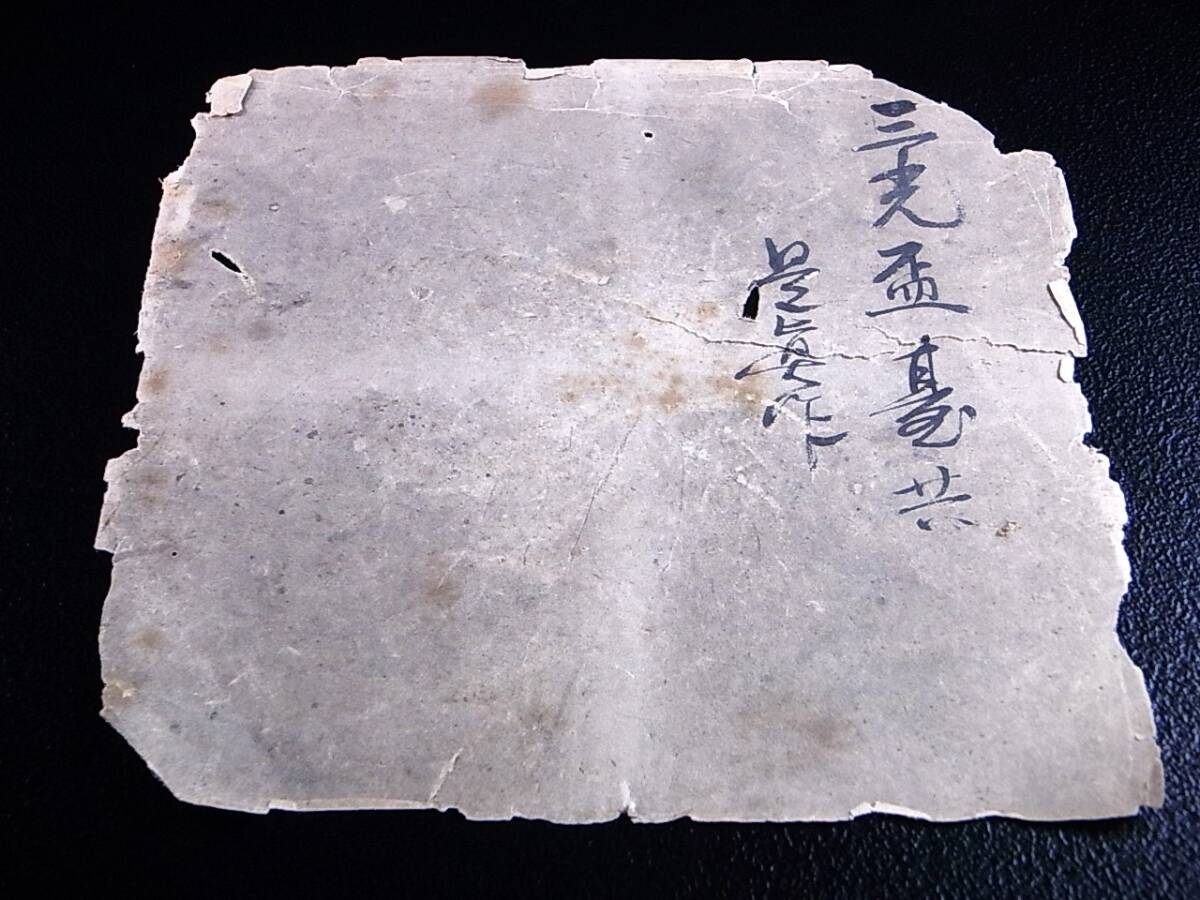 三光盃臺共
是真作